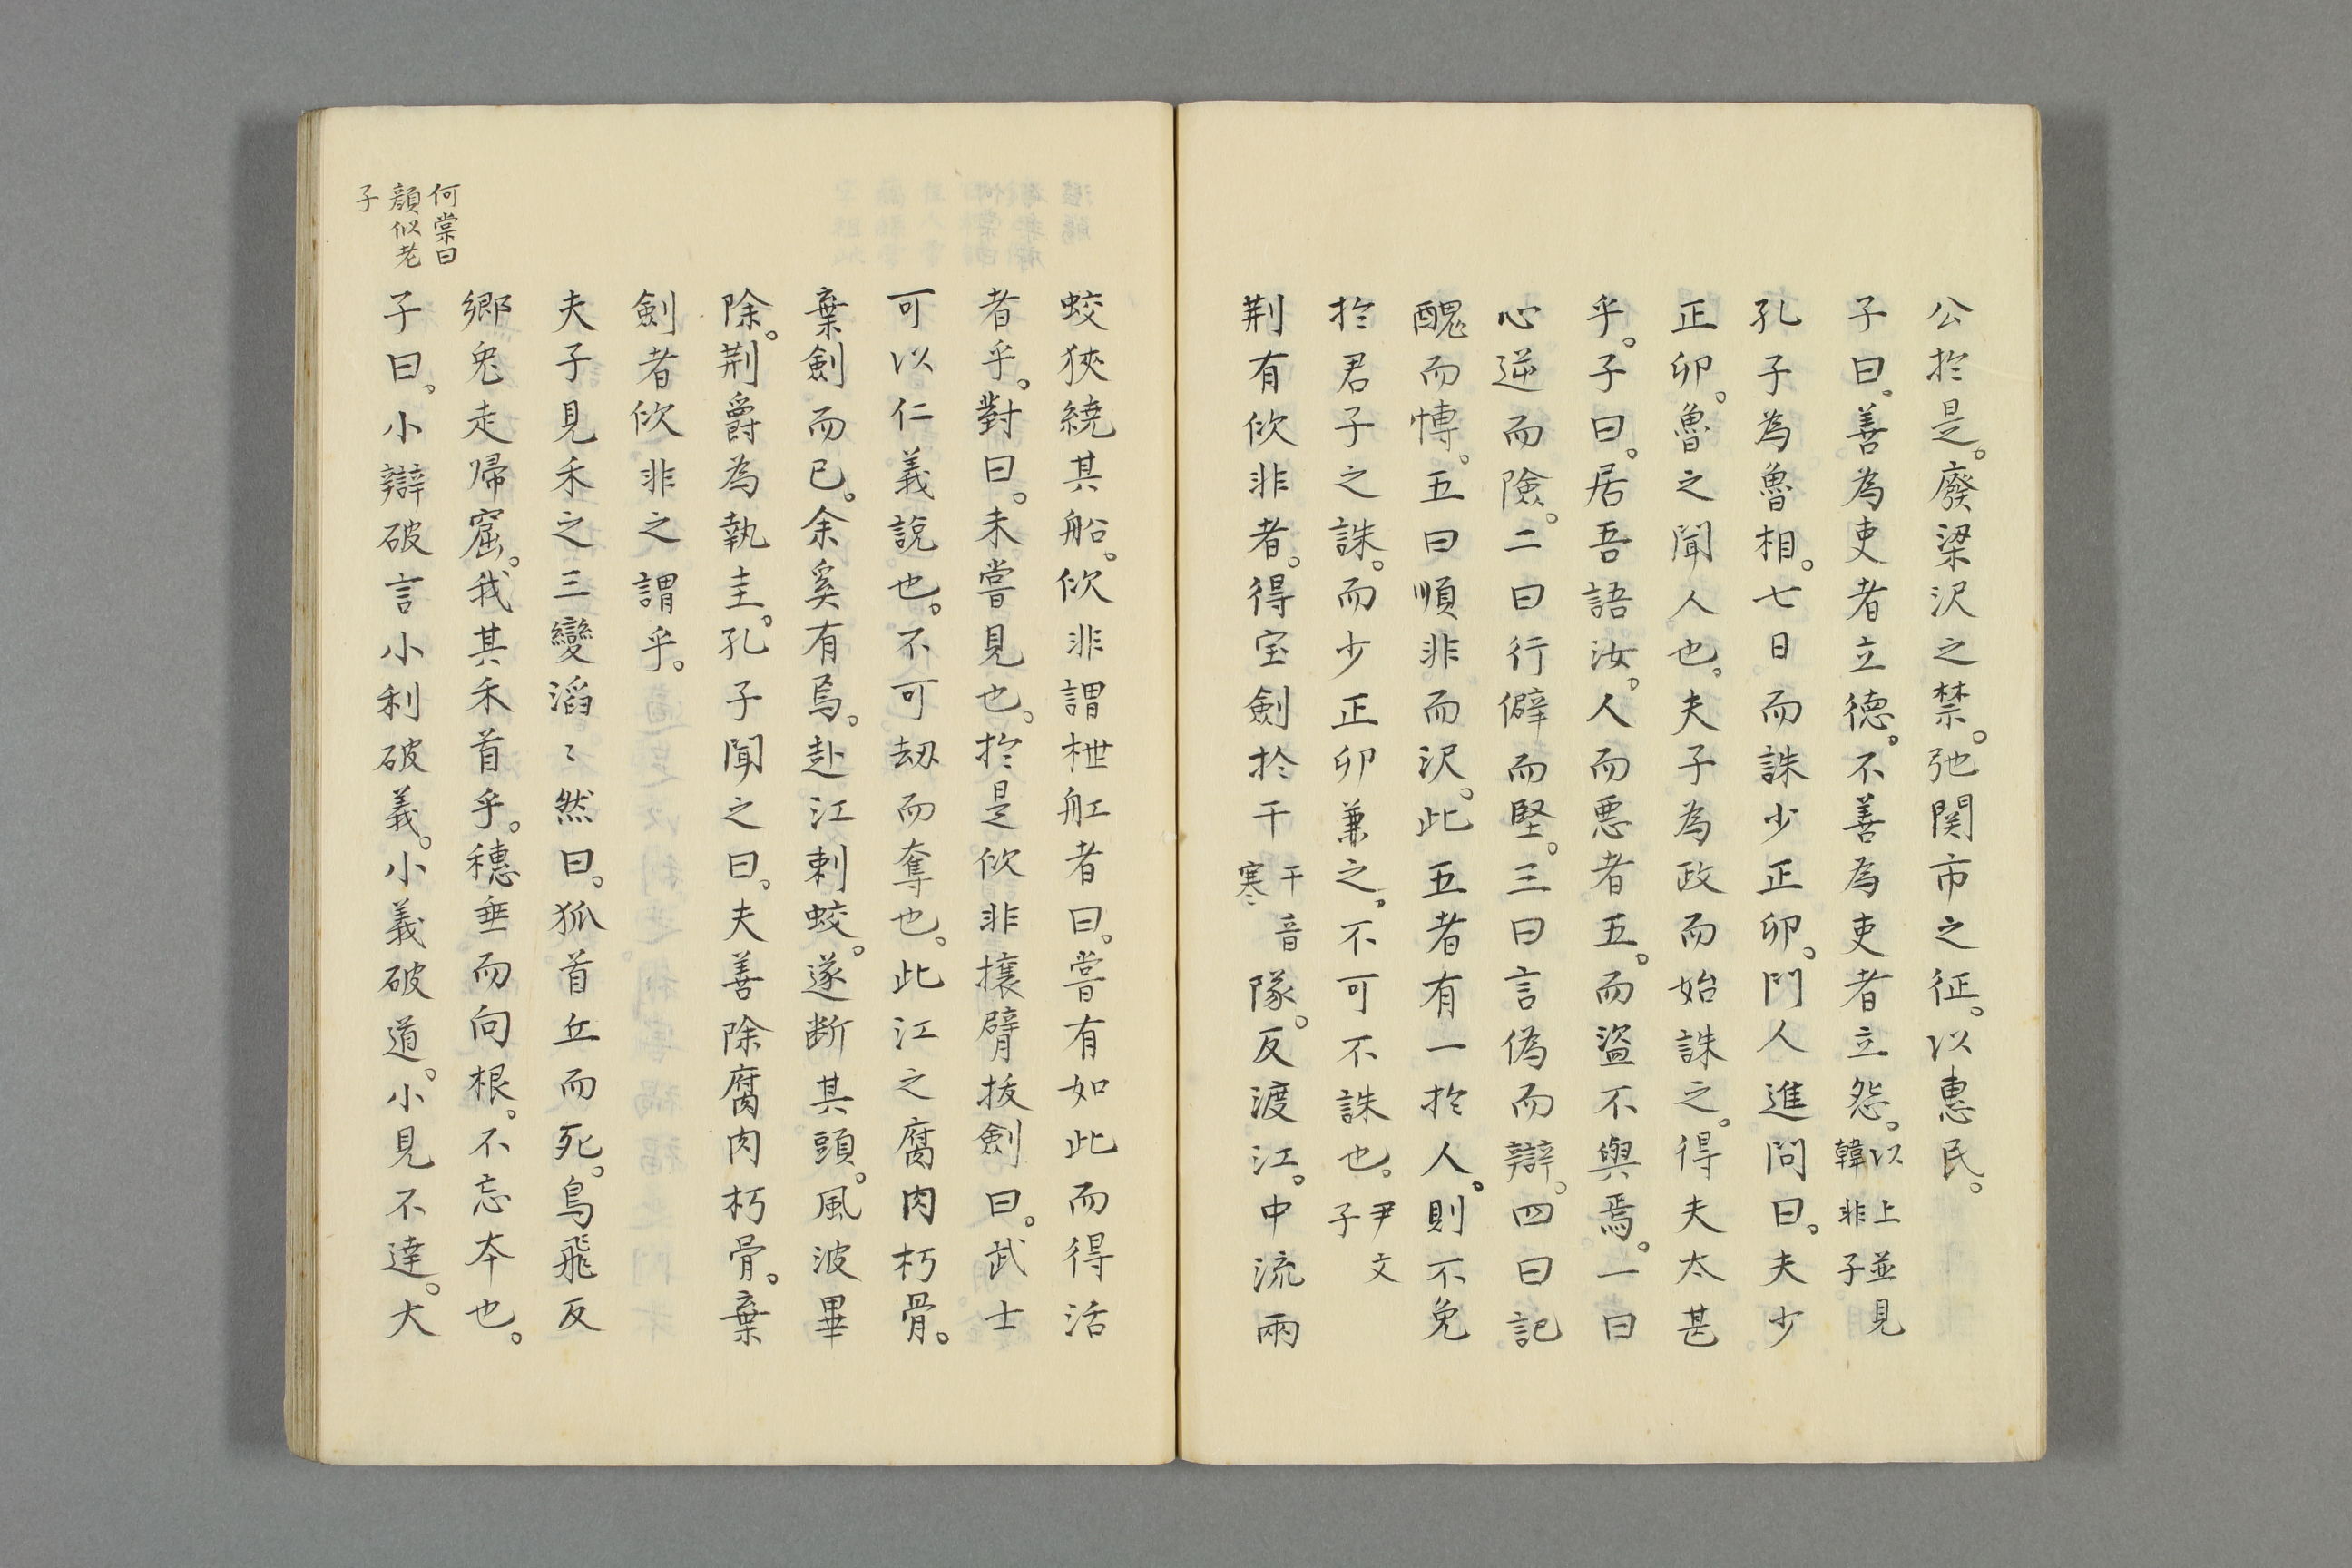 公於是。廢梁沢之禁。弛関市之征。以惠民。
子曰。善為吏者立德。不善為吏者立怨。以上並見韓非子
孔子為魯相。七日而誅少正卯。門人進問曰。夫少
正卯。魯之聞人也。夫子為政而始誅之。得夫太甚
乎。子曰。居吾語汝。人而悪者五。而盜不與焉。一曰
心逆而険。二曰行僻而堅。三曰言偽而辯。四曰記
醜而愽。五曰順非而沢。此五者有一於人。則不免
於君子之誅。而少正卯兼之。不可不誅也。尹文子
荆有佽非者。得宝劍於干干音寒隊。反渡江。中流兩
蛟狹繞其船。佽非謂枻舡者曰。嘗有如此而得活
者乎。對曰。未嘗見也。於是佽非攘臂抜劍曰。武士
可以仁義説也。不可劫而奪也。此江之腐肉朽骨。
棄劍而已。余奚有焉。赴江刺蛟。遂断其頭。風波畢
除。荆爵為執圭。孔子聞之曰。夫善除腐肉朽骨。棄
劍者佽非之謂乎。
夫子見禾之三變滔〻然曰。狐首丘而死。鳥飛反
郷兎走帰窟。我其禾首乎。穗垂而向根。不忘本也。
何棠曰
顔似老
子
子曰。小辯破言小利破義。小義破道。小見不達。大